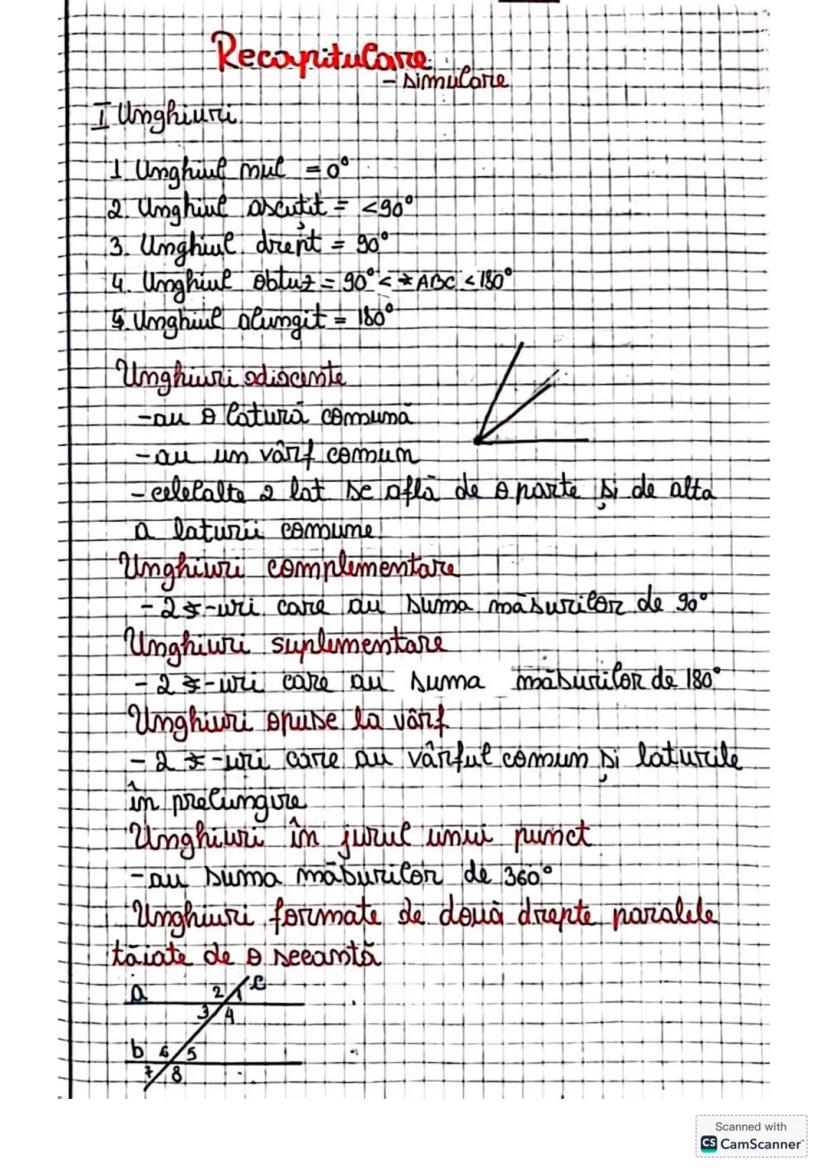 Recapitulare
- simulare
I Unghiuri
1. Unghiul nul = 0°
2. Unghiul ascuțit = <90°
3. Unghiul drept = 90°
4. Unghiul obtuz = 90° < ∢ABC < 180°
5. Unghiul alungit = 180°
Unghiuri adiacente
- au o latură comună
- au un vârf comun
- celelalte 2 lat se află de o parte și de alta
a laturii comune
Unghiuri complementare
- 2 ∢-uri care au suma măsurilor de 90°
Unghiuri suplementare
- 2 ∢-uri care au suma măsurilor de 180°
Unghiuri opuse la vârf
- 2 ∢-uri care au vârful comun și laturile
în prelungire
Unghiuri în jurul unui punct
- au suma măsurilor de 360°
Unghiuri formate de două drepte paralele
tăiate de o secantă
a 2 1 c
3 4
b 6 5
7 8
Scanned with
CS CamScanner